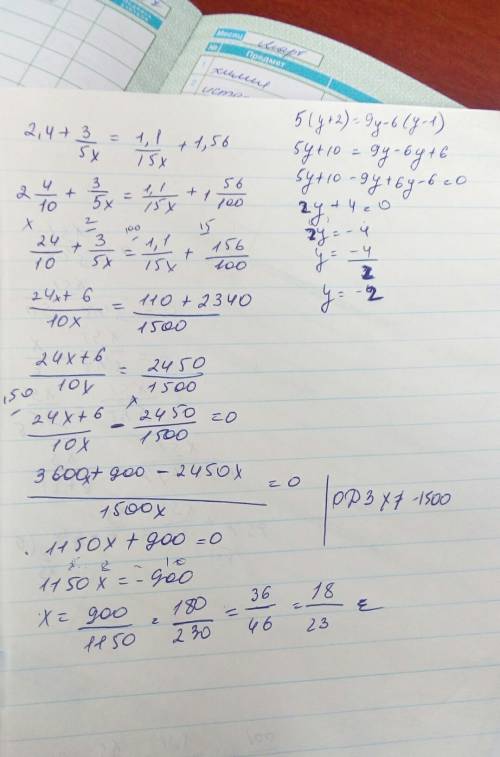 Месяц март
№ Предмет
1 химия
2 исто
2,4 + 3/5x = 1,1/15x + 1,56
2 4/10 + 3/5x = 1,1/15x + 1 56/100
x 2 100 15
24/10 + 3/5x = 1,1/15x + 156/100
24x + 6/10x = 110 + 2340/1500
24x + 6/10x = 2450/1500
150 x
24x + 6/10x - 2450/1500 = 0
3600x + 900 - 2450x/1500x = 0
1150x + 900 = 0
1150x = -900
x = 900/1150 = 180/230 = 36/46 = 18/23
ОДЗ x ≠ -1500
5(y+2) = 9y - 6(y-1)
5y + 10 = 9y - 6y + 6
5y + 10 - 9y + 6y - 6 = 0
2y + 4 = 0
2y = -4
y = -4/2
y = -2